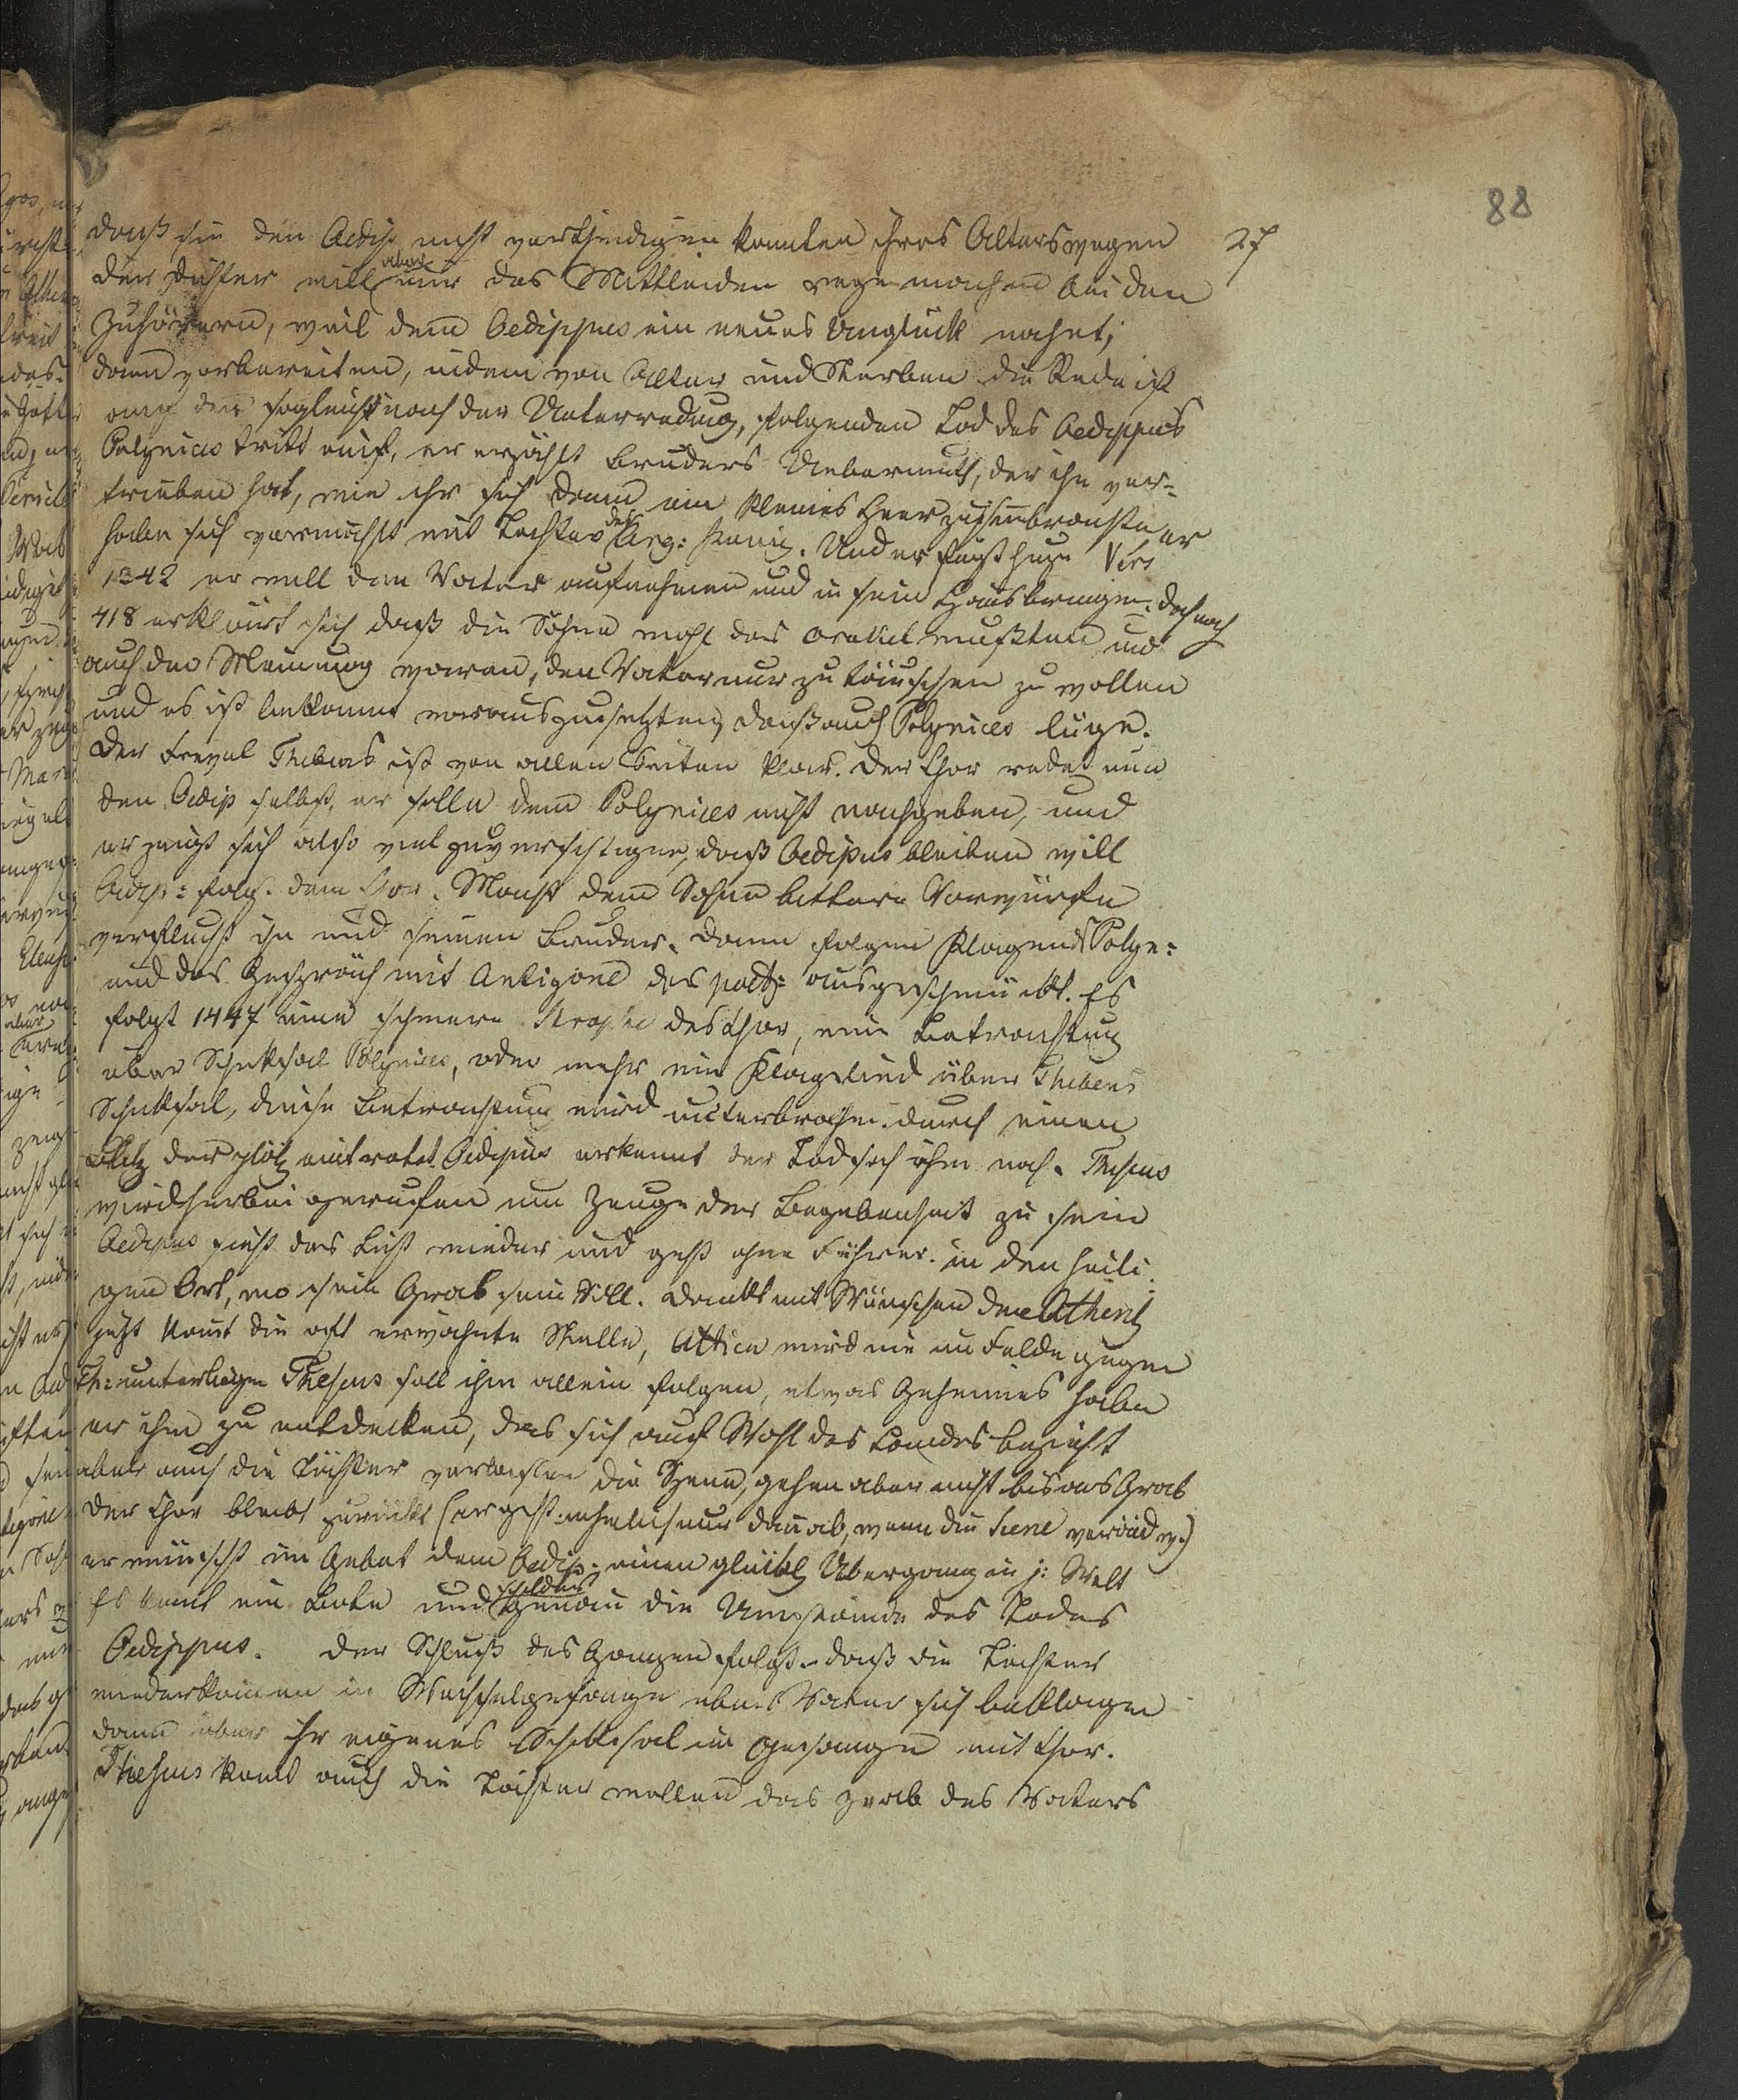 88
27
daß sie den Oedip nicht vertheidigen konnten ihres Alters wegen
der Dichter will aber nur das Mittleiden rege machen bei den
Zuhörern, weil dem Oedippus ein neues Unglück nahet;
dann vorbereiten, indem von Alter und Sterben die Rede ist
auf den sogleich nach der Unterredung, folgenden Tod des Oedippus
Polynices tritt auf, er erzählt Bruders Uebermuth, der ihn ver-
trieben hat, wie er sich dann ein kleines Heer zusambrachte er
habe sich vermählt mit Tochter des Arg: König. Und er sagt Vers
1342 er will den Vater aufnehmen und in sein Haus bringen. Doch nach
418 erklärt sich daß die Söhne wohl das Orakel wußten und
auch der Meinung waren, den Vater nur zu täuschen zu wollen
und es ist bekannt vorauszusetzten, daß auch Polynices lüge.
Der Frevel Thebens ist von allen Seiten klar. Der Chor redet nun
den Oedip selbst, er solle dem Polynices nicht nachgeben, und
er zeigt sich also viel zuversichtiger, daß Oedipus bleiben will
Oedip: folg. dem Chor. Macht dem Sohne bittere Vorwürfe
verflucht ihn und seinen Bruder. Dann folgen Klagen d Polyn:
und das Gespräch mit Antigone das poet: ausgeschmückt. Es
folgt 1447 eine schwere Strophe des Chor, eine Betrachtung
über Schiksal Polynices, oder mehr ein Klaglied über Thebens
Schiksal, diese Betrachtung wird unterbrochen durch einen
Blitz der plötz eintretet. Oedipus erkennt der Tod sei ihm nah. Theseus
wird herbei gerufen um Zeuge der Begebenheit zu sein
Oedipus sieht das Licht wieder und geht ohne Führer in den heili-
gen Ort, wo sein Grab sein soll. Dankt mit Wünschen den Athen
jezt komt die oft erwähnte Stelle, Attica wird nie im Felde gegen
Th: unterliegen Theseus soll ihm allein folgen, etwas Geheimes habe
er ihm zu entdecken, das sich auf Wohl des Landes bezieht
aber auch die Töchter verlassen die Szene, gehen aber nicht bis ans Grab
Der Chor bleibt zurück (er geht nehmlich nur dan ab, wenn die Scene veränd w.)
er wünscht im Gebet dem Oedip: einen glükl Ubergang in j: Welt
Es komt ein Bote und schildert genau die Umstände des Todes
Oedippus. Der Schluß des Ganzen folgt daß die Töchter
wiederkommen in Wechselgesange ihren Vater sich beklagen
dann über ihr eigenes Schiksal im Gesange mit Chor.
Theseus komt auch die Töchter wollen das Grab des Vaters